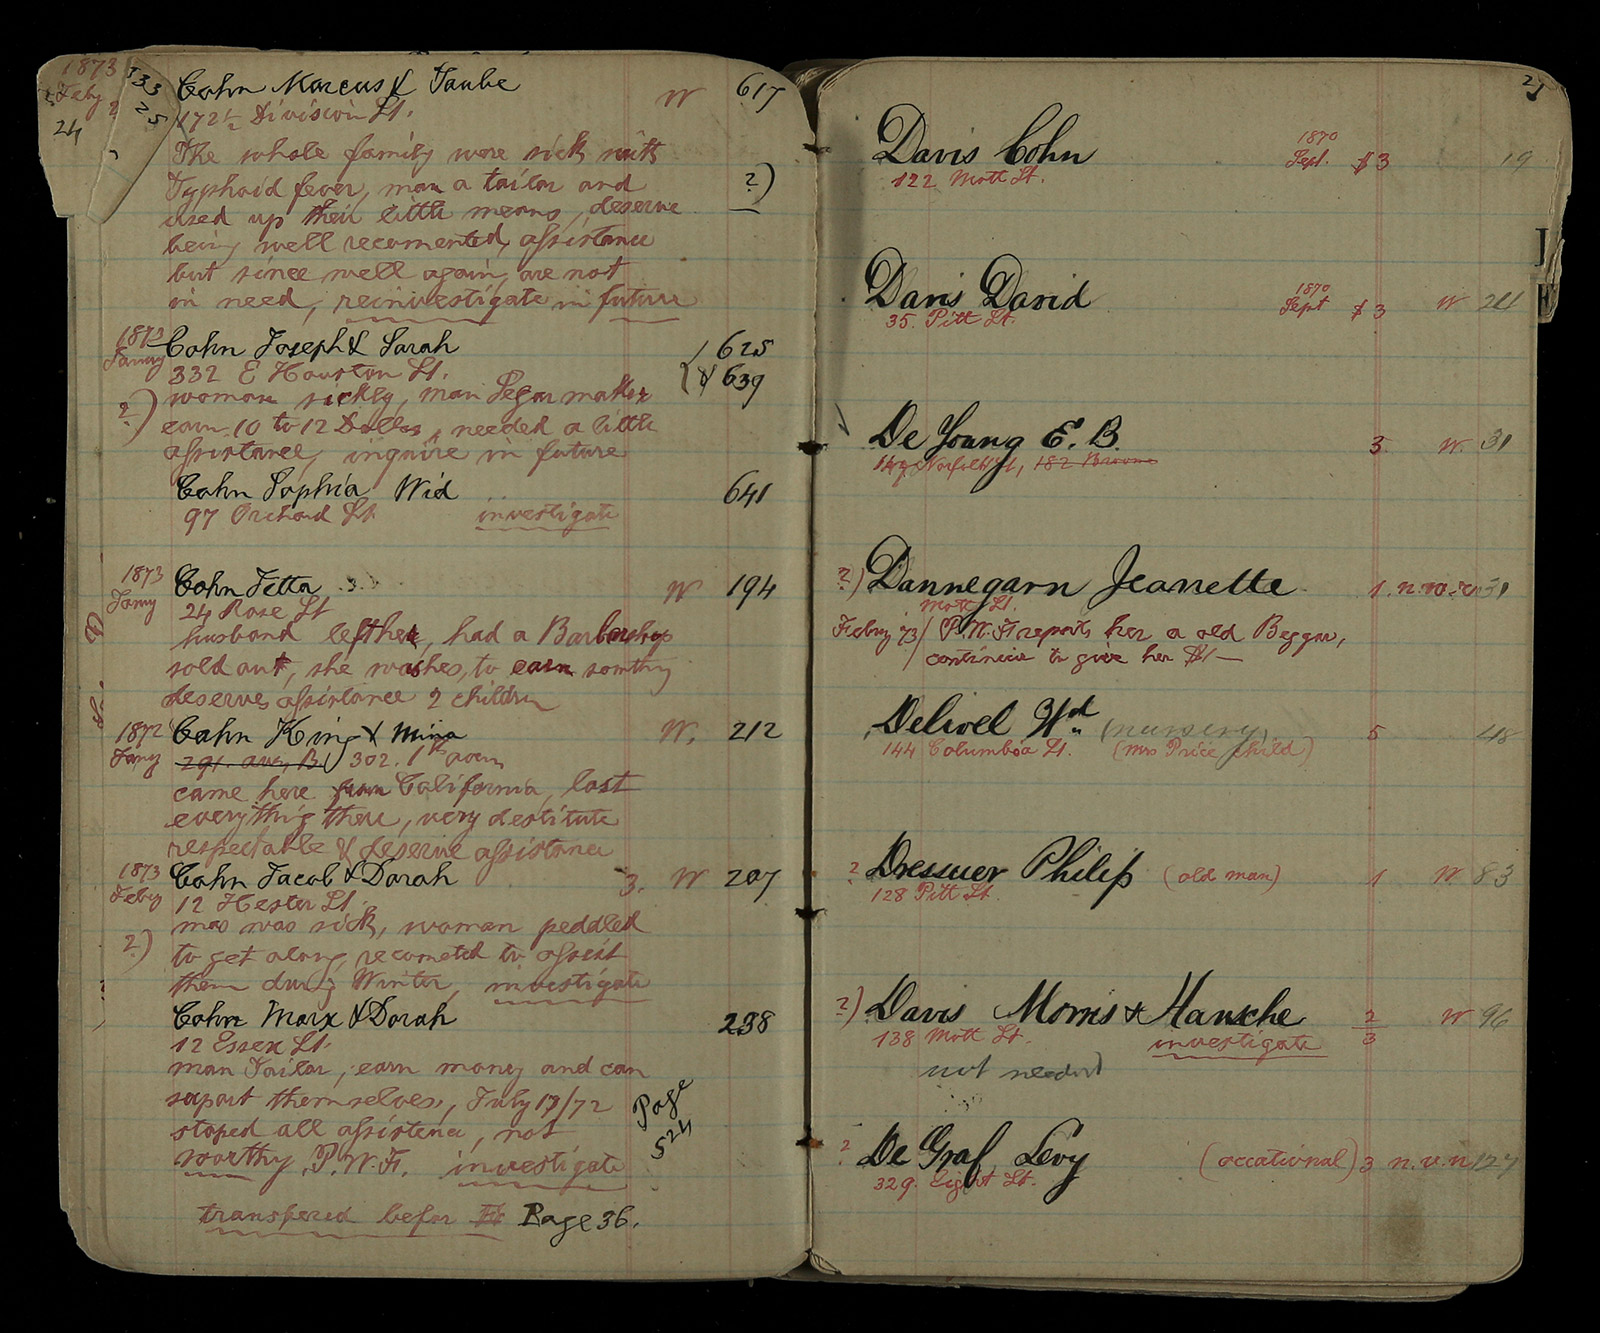 1873
Feby 2
24
333
25
Cohn Marcus & Taube W 617
172½ Division St.
The whole family were sick with
Typhoid fever, man a tailor and ?)
used up their little means, deserve
being well recomented, assistance
but since well again, are not
in need, reinvestigate in future
1873 Cohn Joseph & Sarah 625
Janry 332 E Houston St. & 639
?) woman sickly, man Segar maker
earn 10 to 12 Dollars, needed a little
assistance, inquire in future
Cohn Sophia Wid 641
97 Orchard St. investigate
1873 Cohn Jetta W 194
Janry 24 Rose St
husband left her, had a Barbershop
sold out, she washes, to earn somthing
deserves assistance 2 children
1872 Cohn King & Mina W. 212
Janry 291. ave, B. 302. 1st aven
came here from California, lost
everything there, very destitute
respectable & deserve assistance
1873 Cohn Jacob & Dorah 3. W 207
Feby 12 Hester St.
man was sick, woman peddled
?) to get along, recometed to assist
them during Winter, investigate
Cohn Marx & Dorah 238
12 Essex St.
man Tailor, earn money and can
suport themselves, July 17/72
stoped all assistence, not
worthy P.W.F. investigate
Page
524
transfered befor Page 36.
21
Davis Cohn 1870 Sept. $3 19
122 Mott St.
Davis David 1870 Sept $3 W 24
35. Pitt St.
De Young E. B. 3 W. 31
149 Norfolk St, 182 Broome
?) Dannegarn Jeanette 1 n.w.r. 31
Mott St.
Febry 73/ P.W.F. reports her a old Beggar,
continue to give her $1—
Delivel Wd. (nursery) 5 48
144 Columbia St. (Mrs Price child)
? Dressner Philip (old man) 1 W 83
128 Pitt St.
?) Davis Morris & Hansche 2 W 96
138 Mott St. investigate 3
not needed
? De Graf Levy (occational) 3 n.v.n 127
329. Eight St.